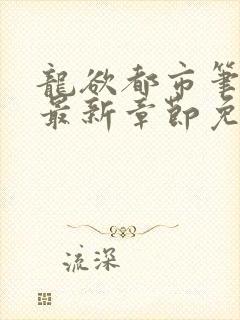 龍欲都市筆
最新章節免
流深